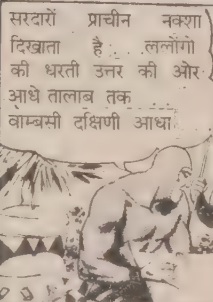 सरदारों प्राचीन नक्शा
दिखाता है . . . ललोंगो
की धरती उत्तर की ओर
आधे तालाब तक
वाम्बसी दक्षिणी आधा